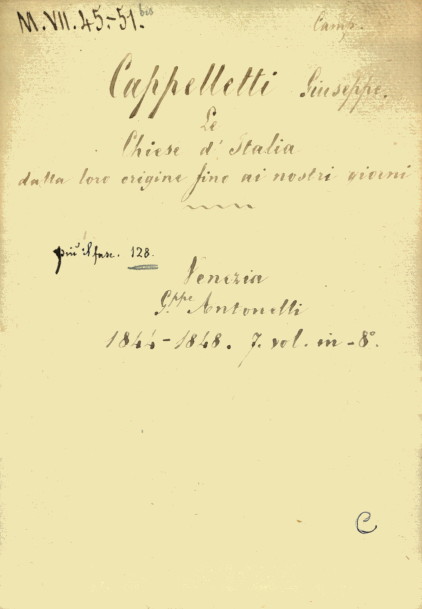 M.VII.45.-51.bis
Camp.
Cappelletti Giuseppe.
Le
Chiese d'Italia
dalla loro origine fino ai nostri giorni
più il fasc. 128.
Venezia
G.ppe Antonelli
1844-1848. 7. vol. in-8º.
C